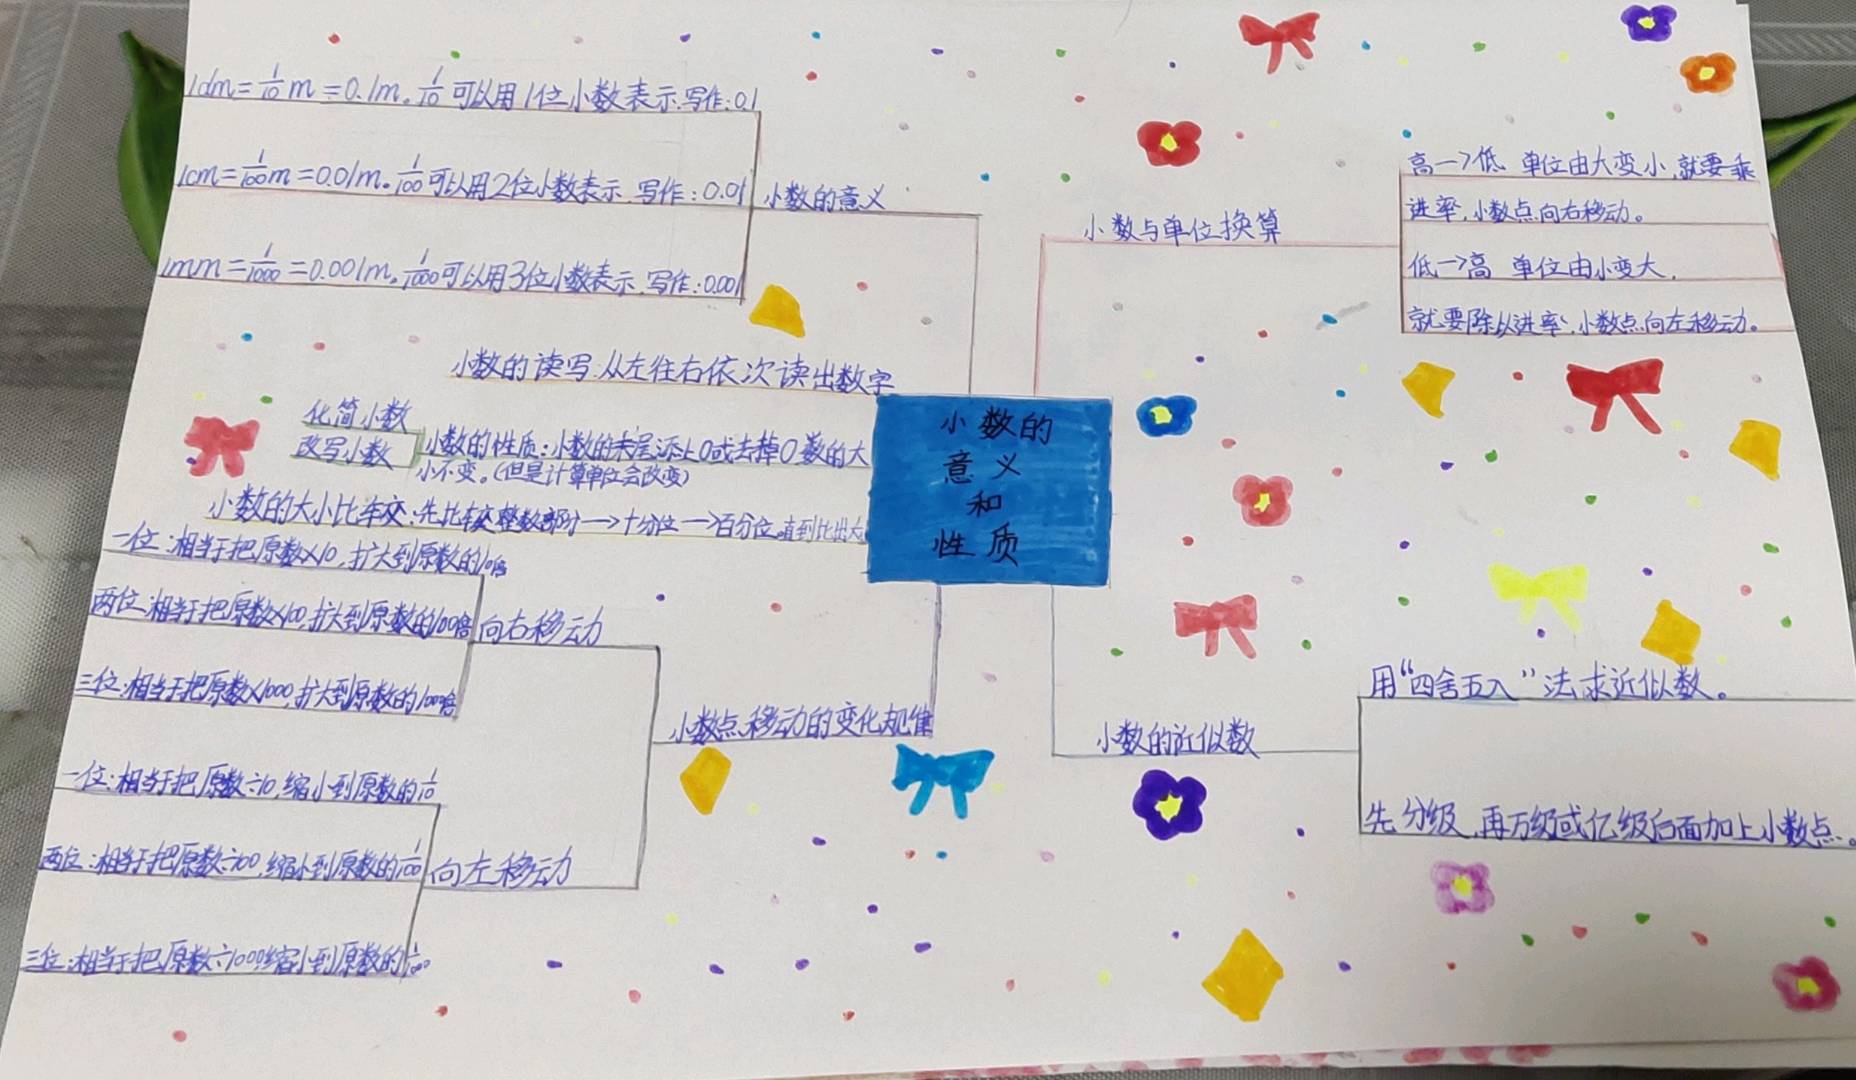 小数的
意义
和
性质
1dm=1/10m=0.1m。1/10可以用1位小数表示.写作:0.1
1cm=1/100m=0.01m。1/100可以用2位小数表示.写作:0.01
1mm=1/1000=0.001m。1/1000可以用3位小数表示.写作:0.001
小数的意义
小数的读写:从左往右依次读出数字
化简小数
改写小数
小数的性质:小数的末尾添上0或去掉0数的大
小不变。(但是计算单位会改变)
小数的大小比较:先比较整数部分→十分位→百分位。直到比出大
一位:相当于把原数×10,扩大到原数的10倍
两位:相当于把原数×100,扩大到原数的100倍
三位:相当于把原数×1000,扩大到原数的1000倍
向右移动
一位:相当于把原数÷10,缩小到原数的1/10
两位:相当于把原数÷100,缩小到原数的1/100
三位:相当于把原数÷1000缩小到原数的1/1000
向左移动
小数点移动的变化规律
小数与单位换算
高→低 单位由大变小,就要乘
进率,小数点向右移动。
低→高 单位由小变大,
就要除以进率,小数点向左移动。
小数的近似数
用“四舍五入”法求近似数。
先分级,再万级或亿级后面加上小数点。